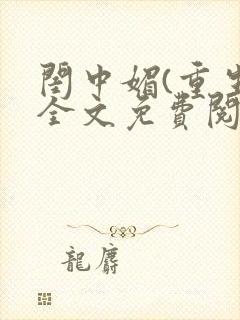 閨中媚(重生
全文免費閱
龍麝